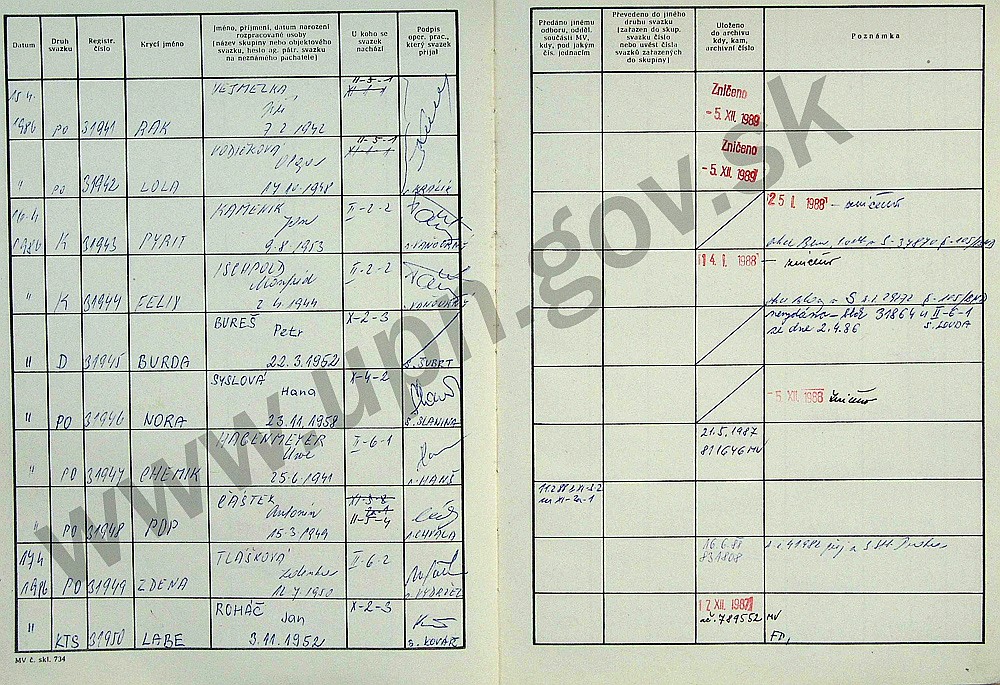 Datum
Druh svazku
Registr. číslo
Krycí jméno
Jméno, příjmení, datum narození
rozpracované osoby
(název skupiny nebo objektového
svazku, heslo ag. pátr. svazku
na neznámého pachatele)
U koho se
svazek
nachází
Podpis
oper. prac.,
který svazek
přijal
Předáno jinému
odboru, odděl.
součásti MV,
kdy, pod jakým
čís. jednacím
Převedeno do jiného
druhu svazku
(zařazen do skup.
svazku číslo
nebo uvésti čísla
svazků zařazených
do skupiny)
Uloženo
do archivu
kdy, kam,
archivní číslo
Poznámka
15.4.
1986 PO 31941 RAK
VEJMELKA
Jiří
7 2 1942
II-5-1
XI-1-1
Zničeno
- 5. XII. 1989
" PO 31942 LOLA
VODIČKOVÁ
Olga
17 IV 1948
II-5-1
XI-1-1
KRÁLÍK
Zničeno
- 5. XII. 1989
16.4.
1986 K 31943 PYRIT
KAMENÍK
Jan
9.8.1953
II-2-2
25 I. 1988 - zničeno
" K 31944 FELIX
Manfréd
2 4 1944
II-2-2
14. I. 1988 - zničeno
" D 31945 BURDA
BUREŠ
Petr
22.3.1952
X-2-3
S. ŠUBRT
31864 u II-6-1
ze dne 2.4.86
S. LOUDA
" PO 31946 NORA
SYSLOVÁ
Hana
23.11.1958
X-4-2
S. SLANINA
- 5. XII. 1988 zničeno
" PO 31947 CHEMIK
HAGENMEYER
Uwe
25.6.1941
II-6-1
HANŠ
21.5.1987
811646 MV
" PO 31948 POP
ČÁSTEK
Antonín
15.3.1949
II-5-4
CHVALA
17.4.
1986 PO 31949 ZDENA
TLÁSKOVÁ
Zdenka
1950
II-6-2
16.6.88
831808
" KTS 31950 LABE
ROHÁČ
Jan
3.11.1952
X-2-3
S. KOVÁŘ
17 XII. 1987
ač. 789552 MV
MV č. skl. 734
www.upn.gov.sk